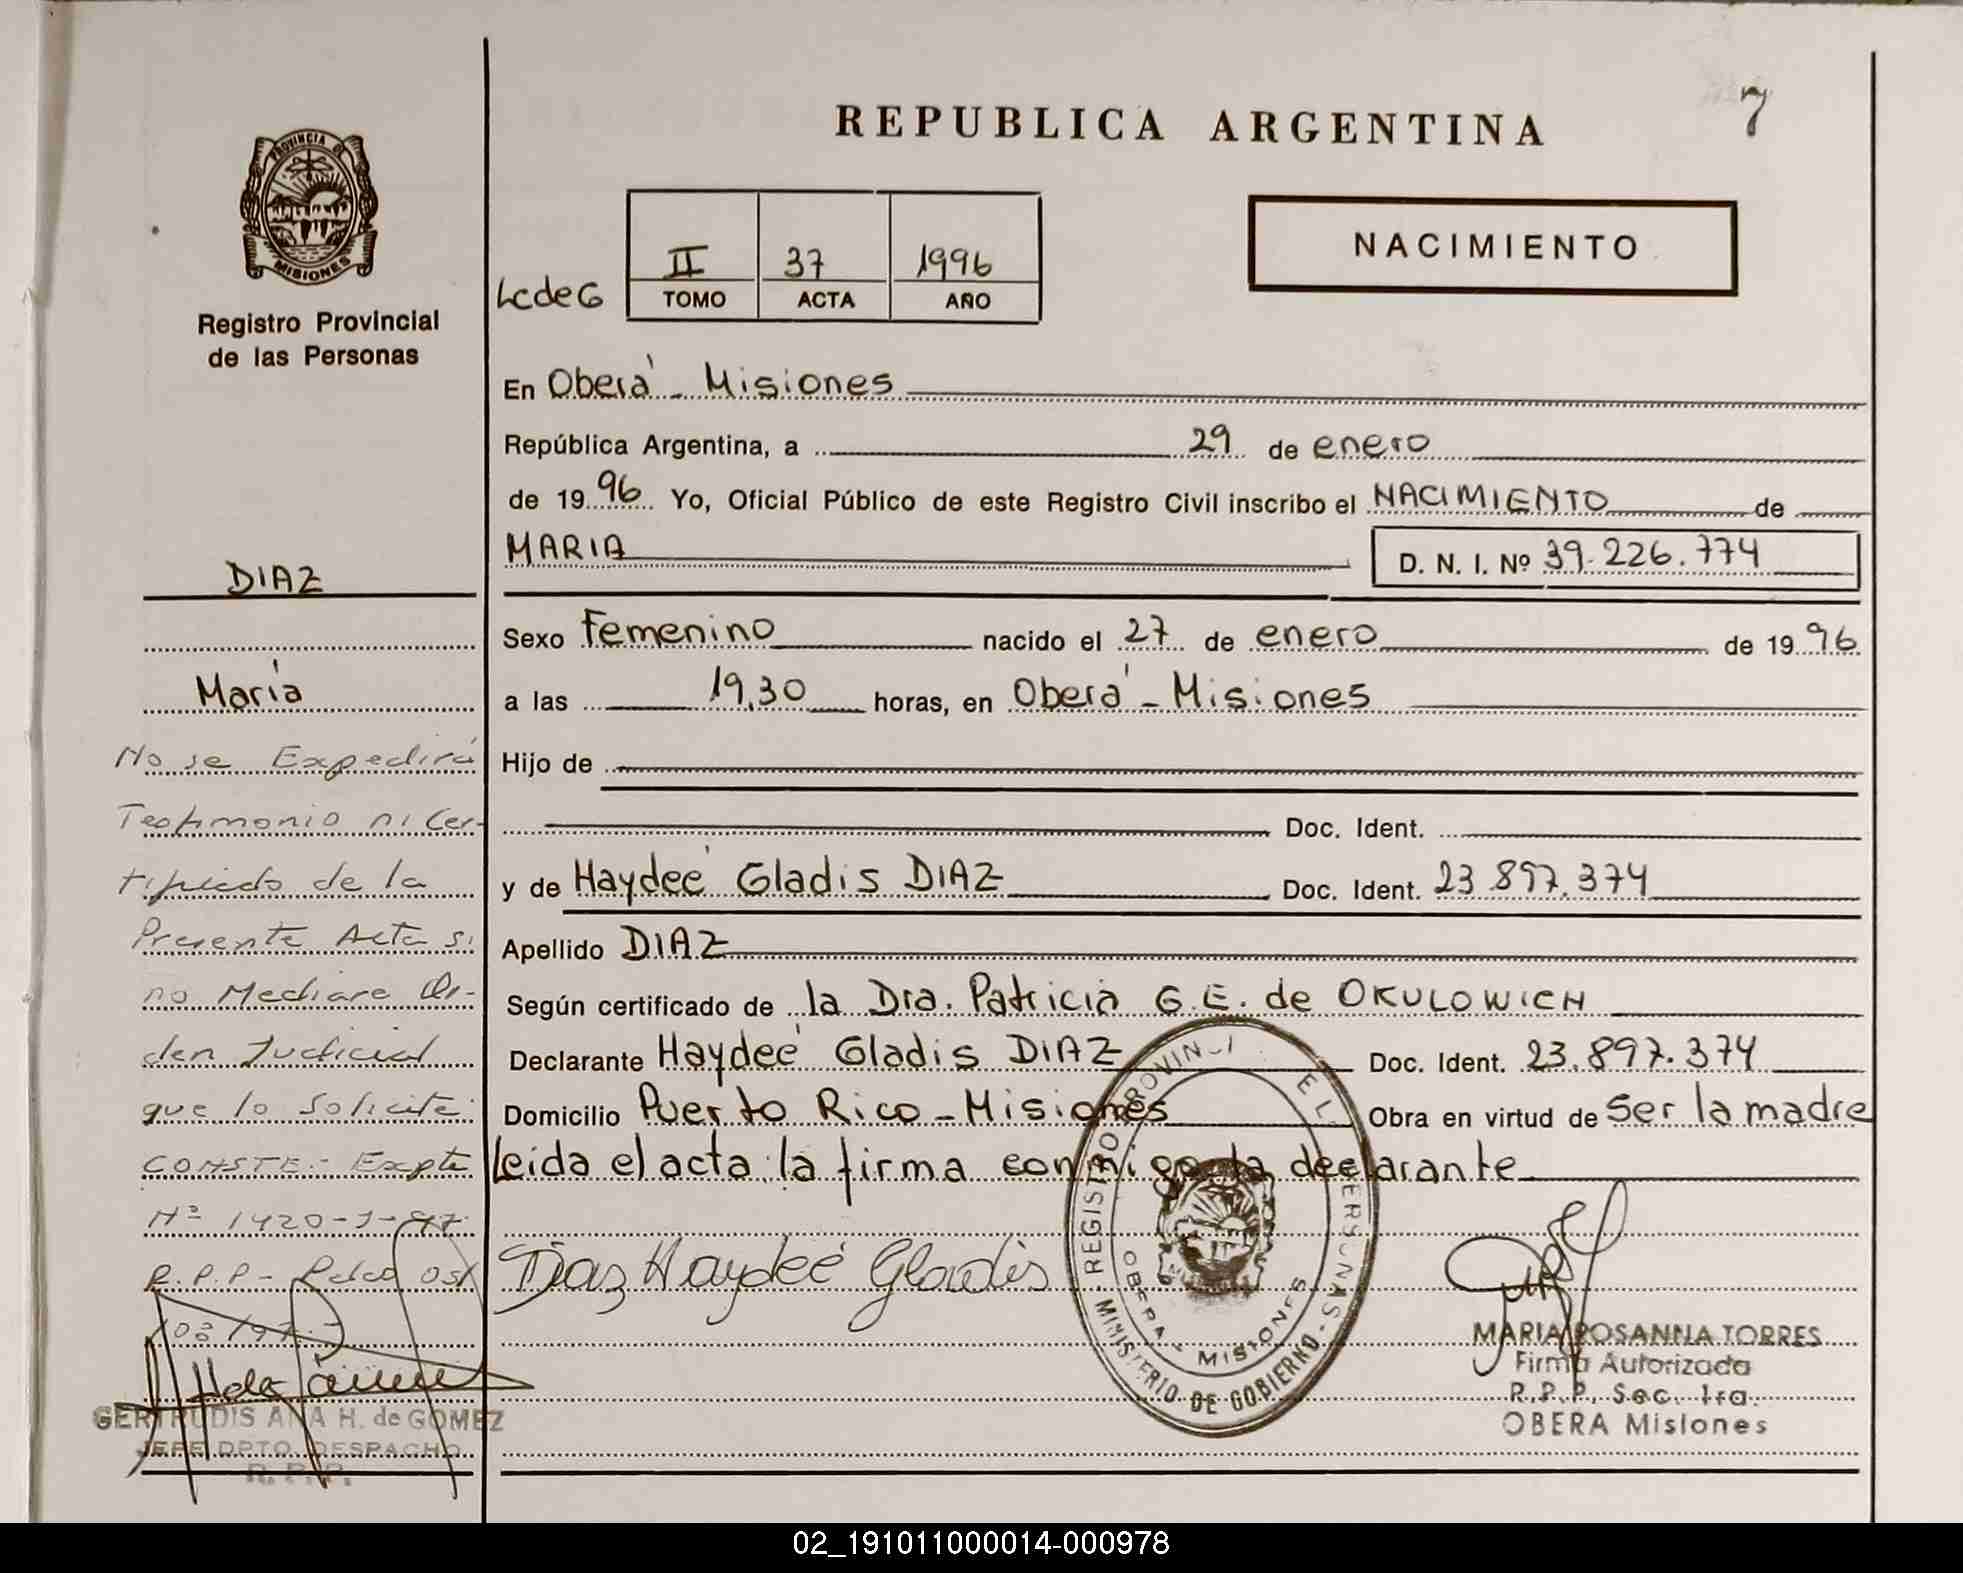 REPUBLICA ARGENTINA
7
PROVINCIA DE
MISIONES
Registro Provincial
de las Personas
NACIMIENTO
LcdeG
II 37 1996
TOMO ACTA AÑO
En Oberá - Misiones
República Argentina, a 29 de enero
de 1996 Yo, Oficial Público de este Registro Civil inscribo el NACIMIENTO de
MARIA D. N. I. Nº 39.226.774
Sexo Femenino nacido el 27 de enero de 1996
a las 19,30 horas, en Oberá - Misiones
Hijo de
Doc. Ident.
y de Haydeé Gladis DIAZ Doc. Ident. 23.897.374
Apellido DIAZ
Según certificado de la Dra. Patricia G.E. de OKULOWICH
Declarante Haydeé Gladis DIAZ Doc. Ident. 23.897.374
Domicilio Puerto Rico - Misiones Obra en virtud de Ser la madre
Leida el acta, la firma conmigo la declarante
Diaz Haydeé Gladis
REGISTRO PROVINCI EL PERSONAS
MINISTERIO DE GOBIERNO
OBERA - MISIONES
MARIA ROSANNA TORRES
Firma Autorizada
R.P.P. Sec. 1ra.
OBERA Misiones
DIAZ
María
No se Expedirá
Testimonio ni Cer-
tificado de la
Presente Acta si
no Mediare Or-
den Judicial
que lo Solicite.
CONSTE.- Expte
Nº 1420-J-97.
R.P.P-
GERTRUDIS ANA H. de GOMEZ
JEFE DPTO. DESPACHO
R. P. P.
02_191011000014-000978